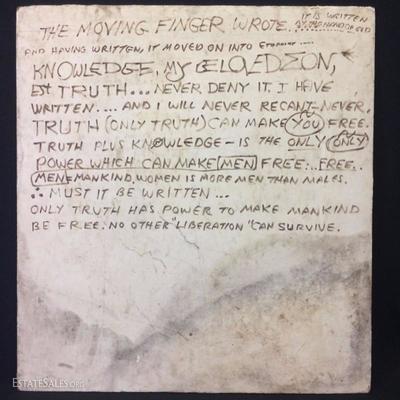 THE MOVING FINGER WROTE. IT IS WRITTEN
BY THE HAND OF GOD
AND HAVING WRITTEN, IT MOVED ON INTO ETERNITY ....
KNOWLEDGE, MY BELOVED ZON,
EST TRUTH... NEVER DENY IT. I HAVE
WRITTEN.... AND I WILL NEVER RECANT-NEVER.
TRUTH (ONLY TRUTH) CAN MAKE YOU FREE.
TRUTH PLUS KNOWLEDGE - IS THE ONLY ONLY
POWER WHICH CAN MAKE MEN FREE... FREE.
MEN=MANKIND, WOMEN IS MORE MEN THAN MALES.
∴ MUST IT BE WRITTEN ...
ONLY TRUTH HAS POWER TO MAKE MANKIND
BE FREE. NO OTHER "LIBERATION" CAN SURVIVE.
ESTATESALES.ORG